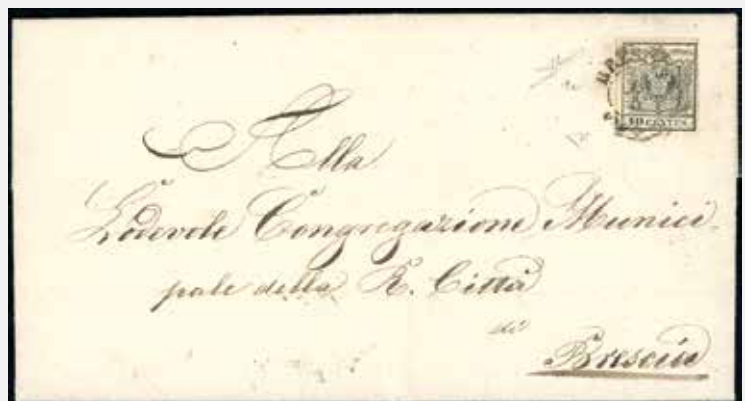 BRES
10 CENTES
Alla
Lodevole Congregazione Munici-
pale della R. Città
di
Brescia